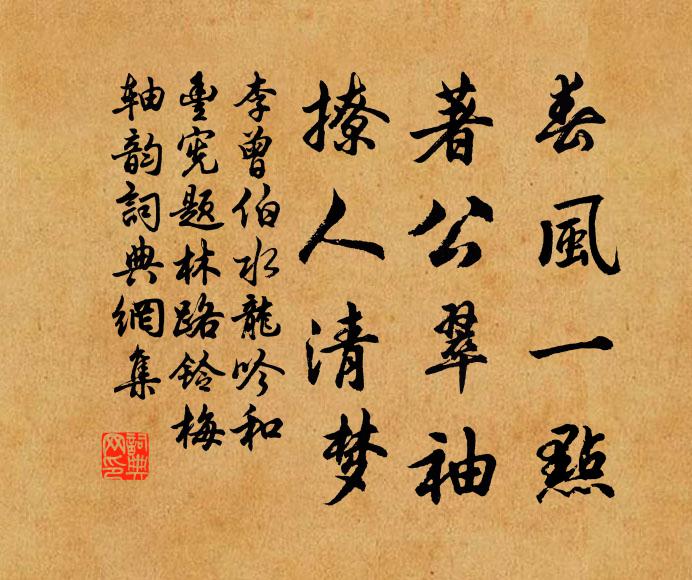 春風一點
著公翠袖
撩人清梦
李曾伯水龍吟和
丰宪题林路鈐梅
軸韵詞典網集
詞典网印